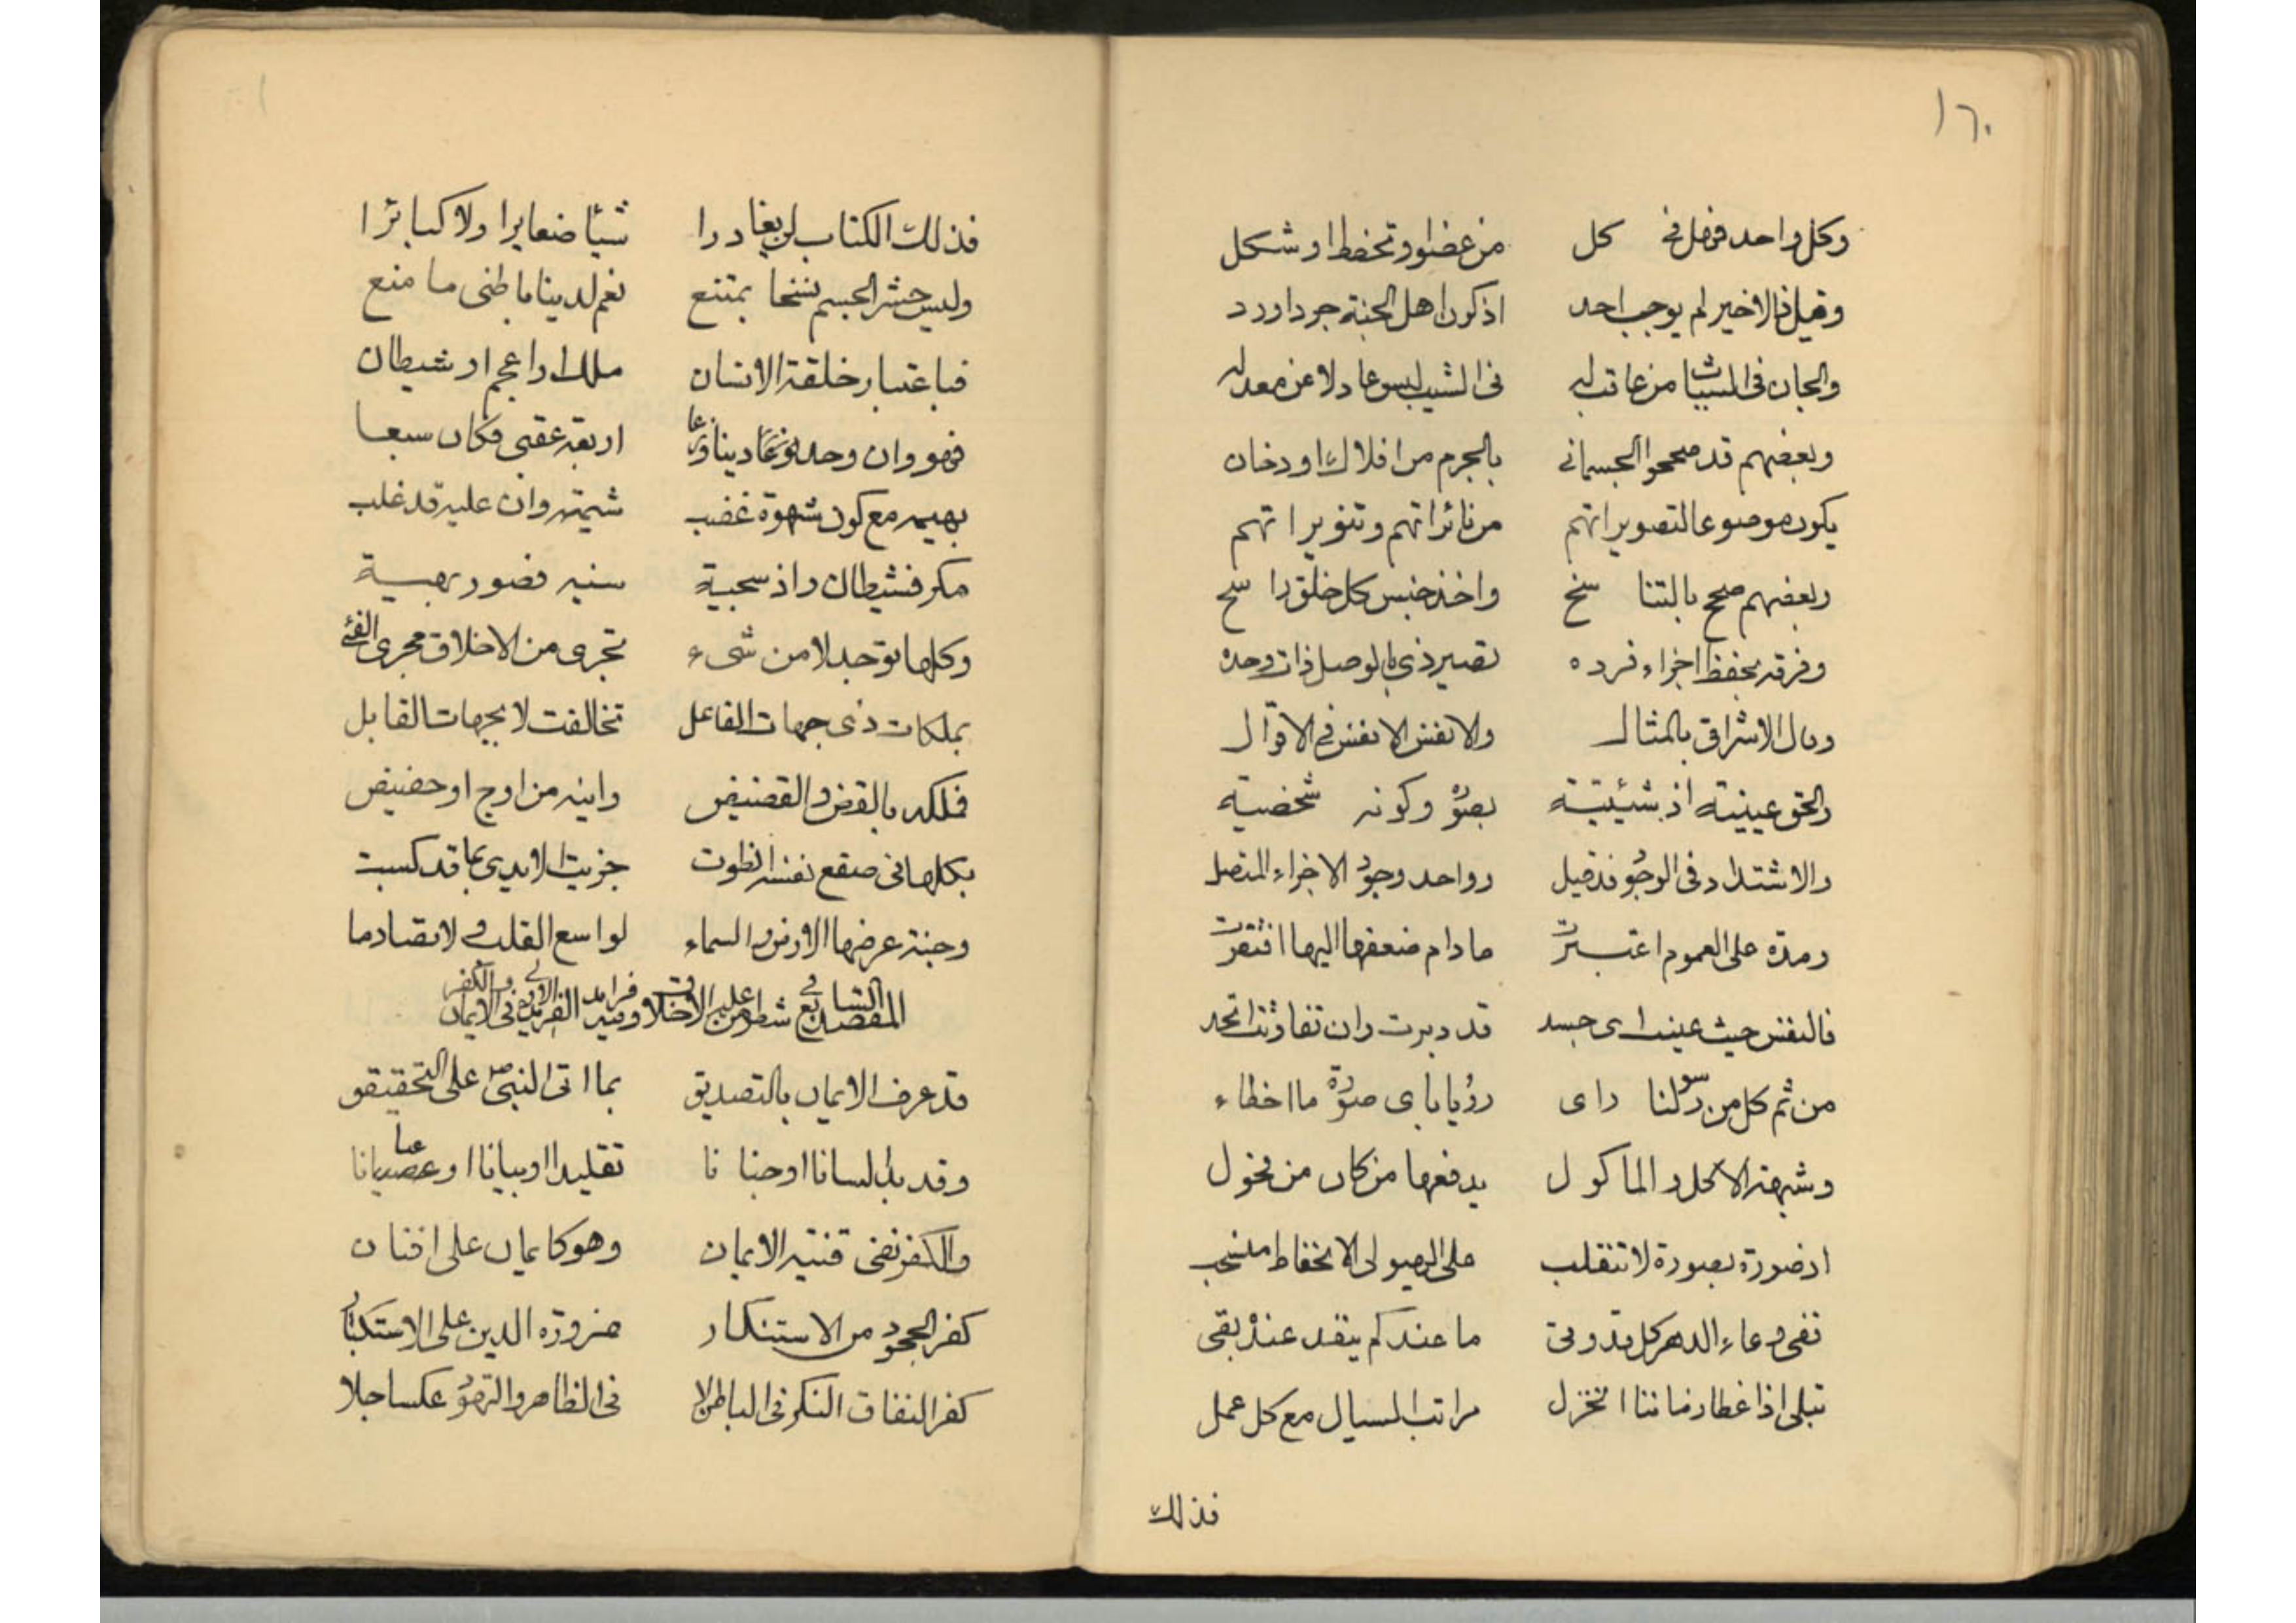 ١٦٠
وكل واحد فهل في كل من عضو او تخطط او شكل
وقيل ذا الاخير لم يوجب احد اذ كون اهل الجنة جردا ورد
والجان في المشيبات من عاتب له في الشيب ليس عادلا عن معدله
وبعضهم قد صححوا الجسماني بالجرم من افلاك او دخان
يكون موضوعا لتصويراتهم من نائراتهم وتنويراتهم
وبعضهم صحح بالتناسخ واخذ جنس كل خلق راسخ
وفرقة بحفظ اجزاء فرده تصير ذي بالوصل ذات وحده
وبال الاشراق بالمثال والانفس الانفس في الاقوال
والحق عينية اذ شيئية بصورة وكونه شخصية
والاشتداد في الوجود قد قيل وواحد وجود الاجزاء المتصل
ومدة على العموم اعتبرت مادام ضعفها اليها افتقرت
فالنفس حيث عينت اى جسد قد دبرت وان تفاوتت اتحد
من ثم كل من رسولنا راى رؤيا باى صورة ما اخطاء
وشبهة الاكل والماكول يدفعها من كان من فحول
اذ صورة بصورة لا تنقلب على الهيولى الانحفاظ منسحب
ففي وعاء الدهر كل قد وقى ما عندكم ينفد عنده بقى
تبلى اذا غطا زماننا انخزل مراتب السيال مع كل عمل
فذلك
فذلك الكتاب لن يغادرا شيئا صغايرا ولا كبائرا
وليس حشر الجسم نسخا بمتنع نعم لدينا باطنى ما منع
فباعتبار خلقة الانسان ملك او اعجم او شيطان
فهو وان وحد نوعا دينا وزعا اربعة عقبى فكان سبعا
بهيمه مع كون شهوة غضب شيمته وان عليه قد غلب
مكر فشيطان واذ سجية سنيه فصور بهية
وكلها توجد لا من شيء تجرى من الاخلاق مجرى الفئ
بملكات ذى جهات الفاعل تخالفت لا بجهات القابل
فملكه بالقض والقضيض واينه من اوج او حضيض
بكلها في صقع نفسه انطوت جزيت الايدى بما قد كسبت
وجنة عرضها الارض والسماء لواسع القلب ولا تصادما
المقصد السابع في شطر من علم الاخلاق وفيه فرايد الفريدة الاولى في الايمان والكفر
قد عرف الايمان بالتصديق بما اتى النبي ص على التحقيق
وقد يدل لسانا او جنانا تقليدا او بيانا او عيانا
والكفر نفى قنية الايمان وهو كايمان على افنان
كفر الجحود من الاستنكار ضرورة الدين على الاستكبار
كفر النفاق النكر في الباطن لا في الظاهر والتهود عكسا جلا